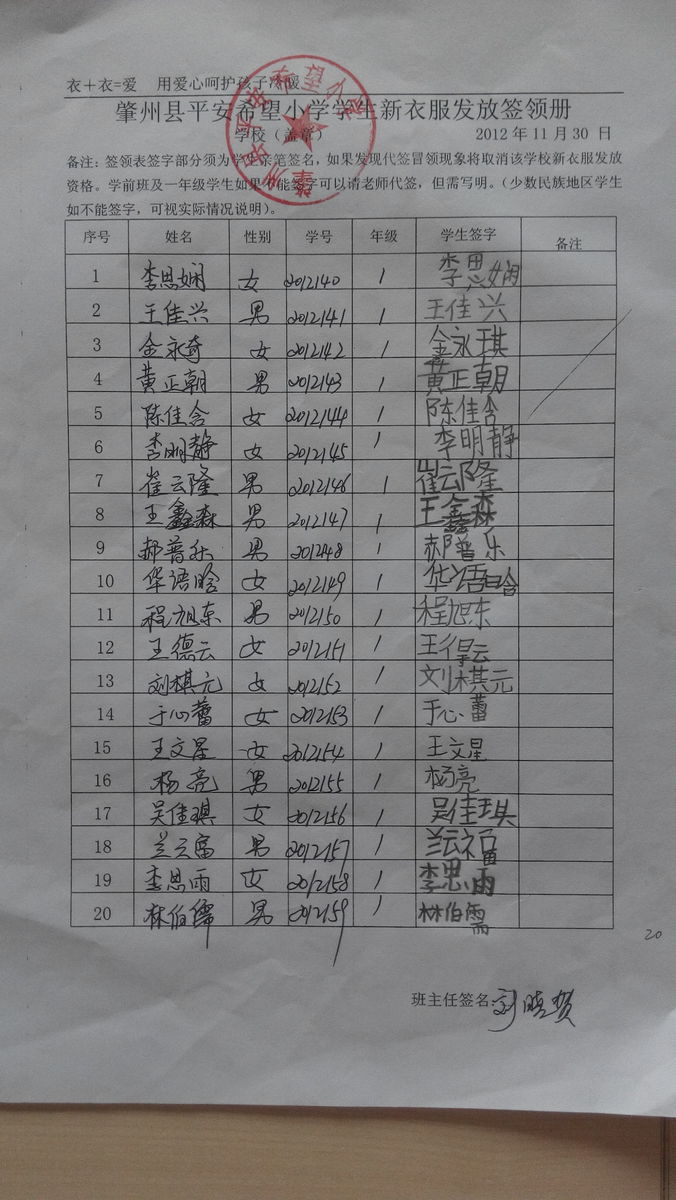 衣＋衣=爱 用爱心呵护孩子冷暖
肇州县平安希望小学学生新衣服发放签领册
学校（盖章） 2012 年 11 月 30 日
备注：签领表签字部分须为学生亲笔签名，如果发现代签冒领现象将取消该学校新衣服发放
资格。学前班及一年级学生如果不能签字可以请老师代签，但需写明。（少数民族地区学生
如不能签字，可视实际情况说明）。
序号 姓名 性别 学号 年级 学生签字 备注
1 李思娴 女 2012140 1 李思娴
2 王佳兴 男 2012141 1 王佳兴
3 金永奇 女 2012142 1 金永琪
4 黄正朝 男 2012143 1 黄正朝
5 陈佳含 女 2012144 1 陈佳含
6 李明静 女 2012145 1 李明静
7 崔云隆 男 2012146 1 崔云隆
8 王鑫森 男 2012147 1 王鑫森
9 郝普乐 男 2012148 1 郝普乐
10 华语晗 女 2012149 1 华语晗
11 程旭东 男 2012150 1 程旭东
12 王德云 女 2012151 1 王得云
13 刘棋元 女 2012152 1 刘棋元
14 于心蕾 女 2012153 1 于心蕾
15 王文星 女 2012154 1 王文星
16 杨亮 男 2012155 1 杨亮
17 吴佳琪 女 2012156 1 吴佳琪
18 兰云富 男 2012157 1 兰云富
19 李思雨 女 2012158 1 李思雨
20 林伯儒 男 2012159 1 林伯儒
20
班主任签名：刘晓贺